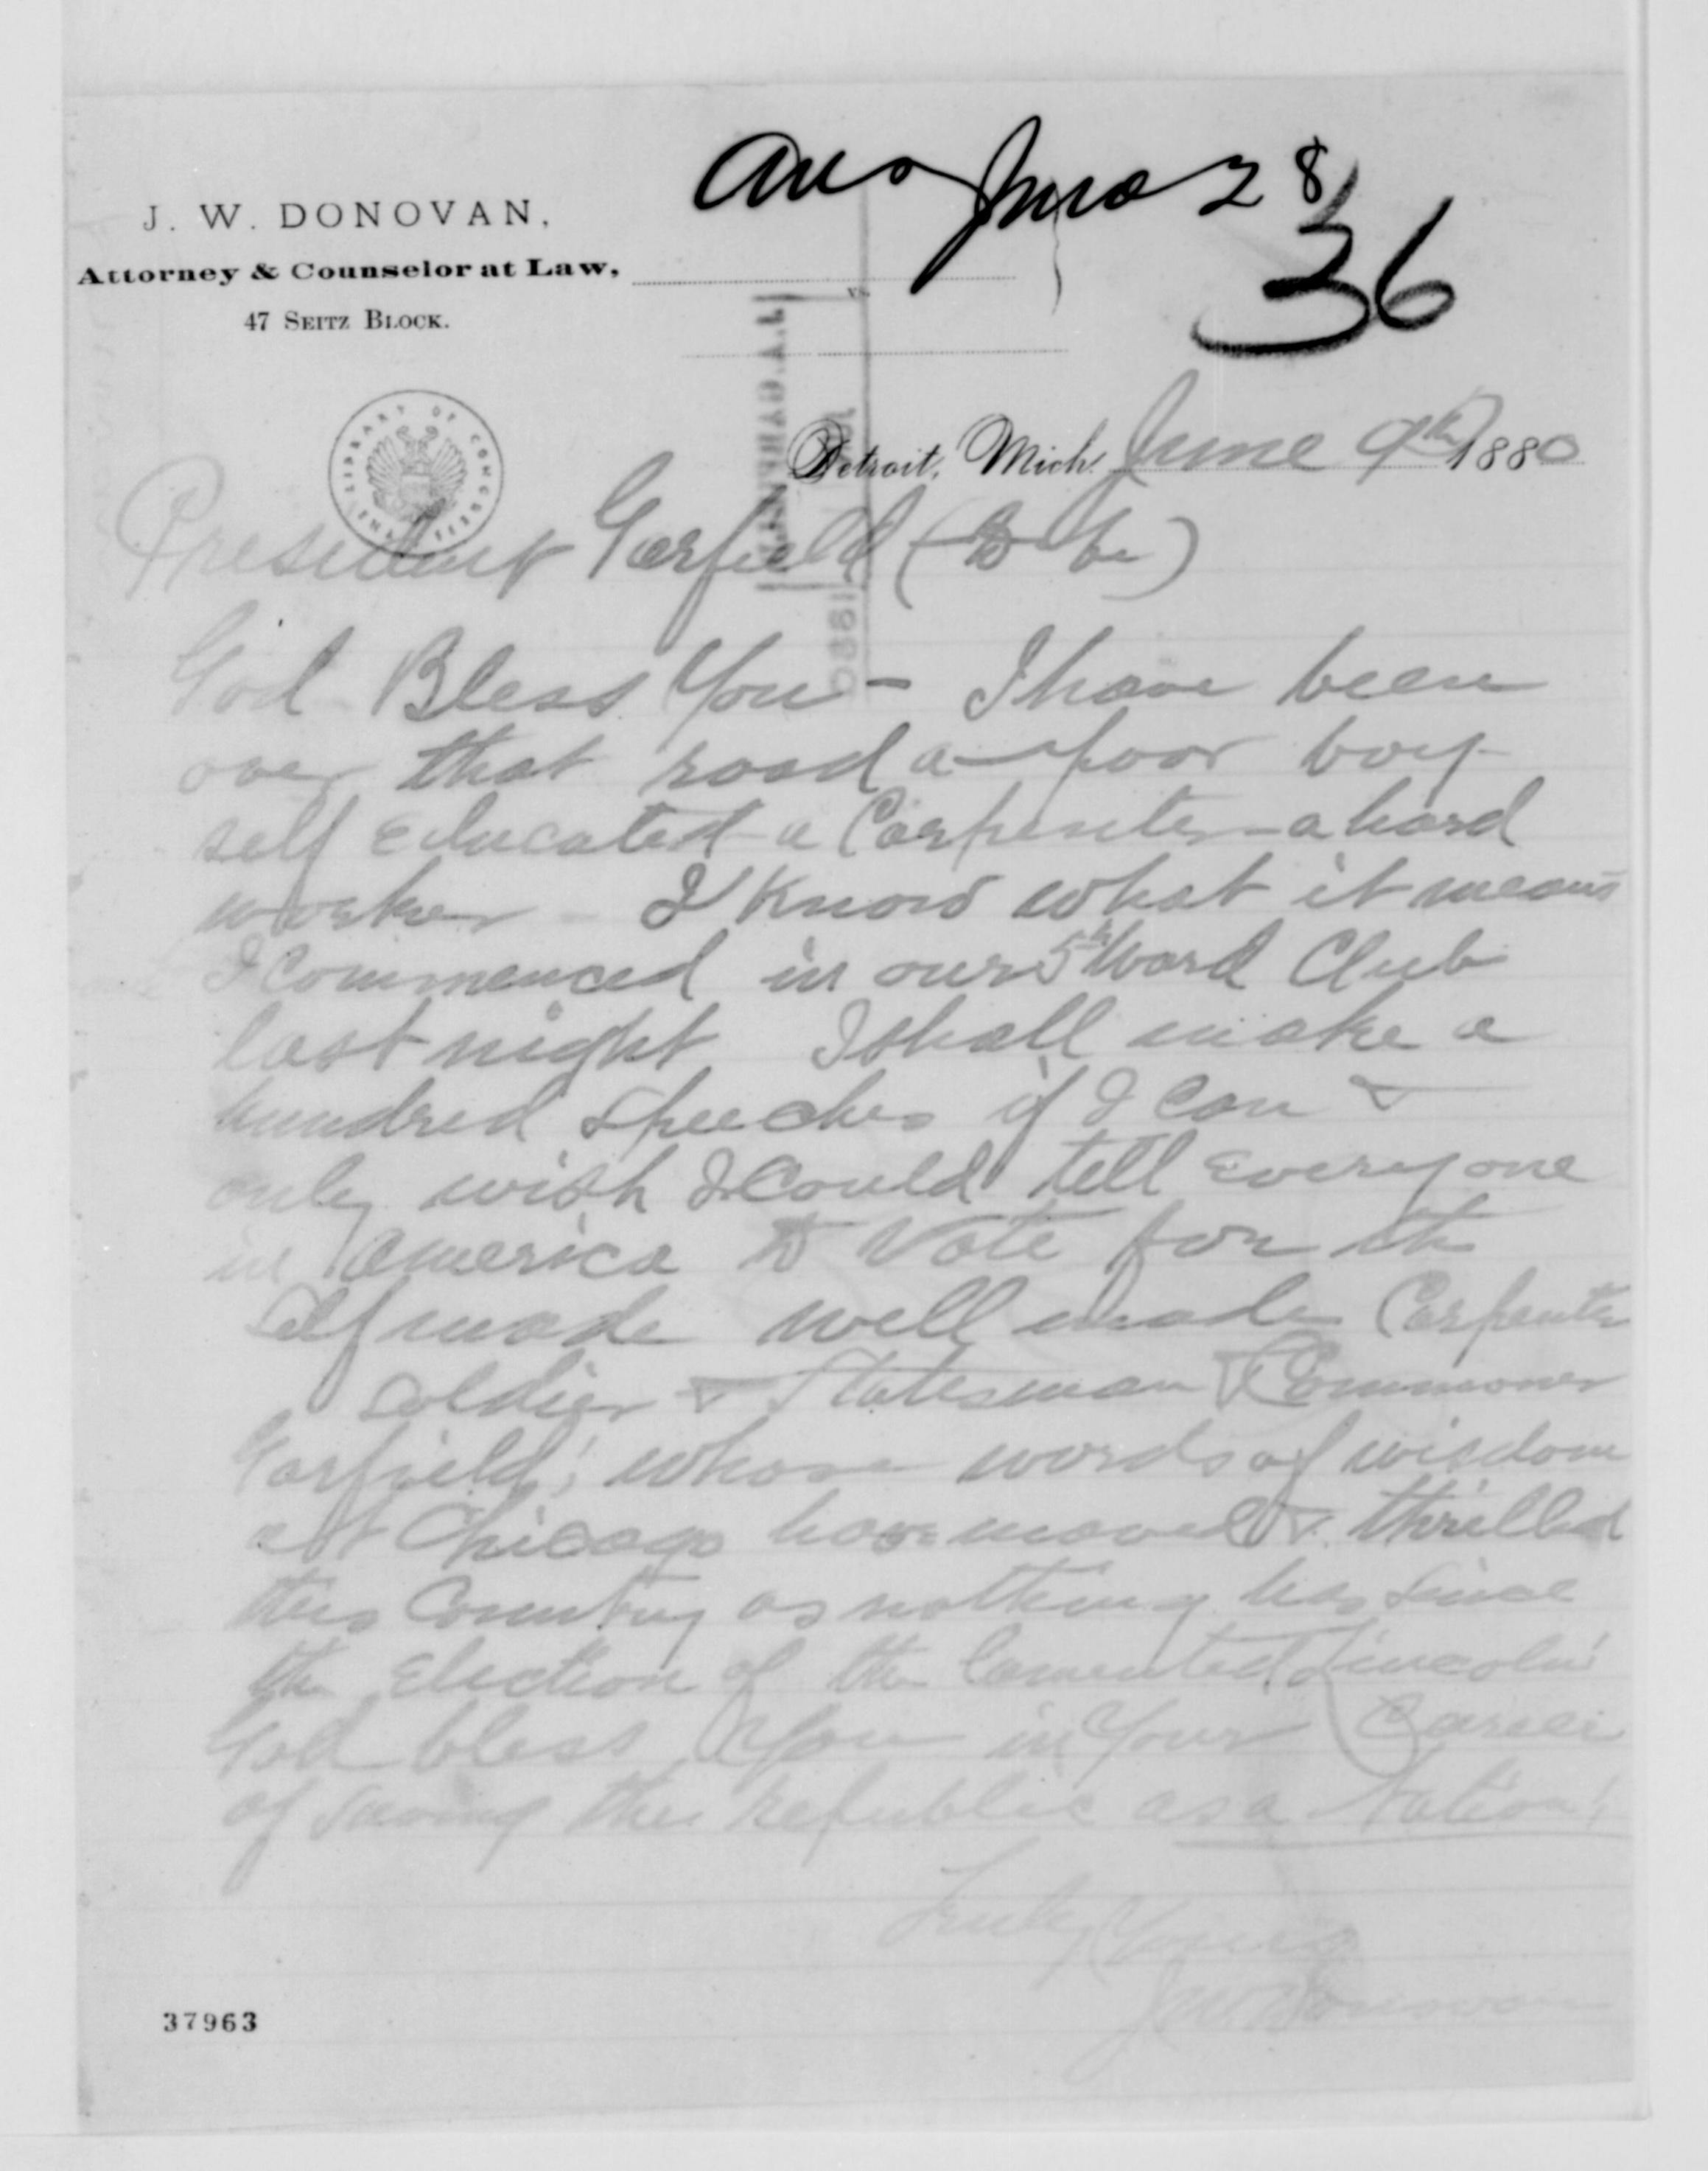 Ans June 28
36
J. W. DONOVAN,
Attorney & Counselor at Law,
vs.
47 SEITZ BLOCK.
LIBRARY OF CONGRESS
Detroit, Mich. June 9th 1880
President Garfield (to be)
God Bless You - I have been
over that road a poor boy -
self educated - a Carpenter - a hard
worker - I Know what it means
I Commenced in our 5th Ward Club
last night I shall make a
hundred speeches if I can &
only wish I Could tell Everyone
in America to Vote for the
Self made well made Carpenter
soldier & Statesman & Commoner
Garfield! whose words of wisdom
at Chicago have moved & thrilled
this Country as nothing has since
the Election of the lamented Lincoln!
God bless You in Your Career
of saving the Republic as a Nation!
Truly Yours
J. W. Donovan
37963
1880